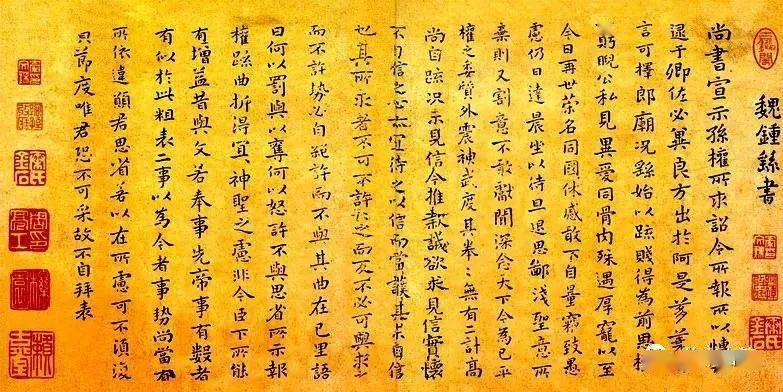 魏鍾繇書
尚書宣示孫權所求詔令所報所以博
逮于卿佐必冀良方出於阿是芻蕘
言可擇郎廟況繇始以疏賤得為前恩
睨公私見異愛同骨肉殊遇厚寵以至
今日再世榮名同國休慼敢不自量竊致愚
慮仍日達晨坐以待旦退思鄙淺聖意所
棄則又割意不敢獻聞深念天下今為已平
權之委質外震神武度其拳〻無有二計高
尚自疏況未見信今推款誠欲求見信實懷
不自信之心亦宜待之以信而當護其未自信
也其所求者不可不許〻之而反不必可與求之
而不許勢必自絕許而不與其曲在己里語
曰何以罰與以奪何以怒許不與思省所示報
權疏曲折得宜〻神聖之慮非今臣下所能
有增益昔與文若奉事先帝事有數者
有似於此粗表二事以為今者事勢尚當有
所依違願君思省若以在所慮可不須復
只節度唯君恐不可采故不自拜表